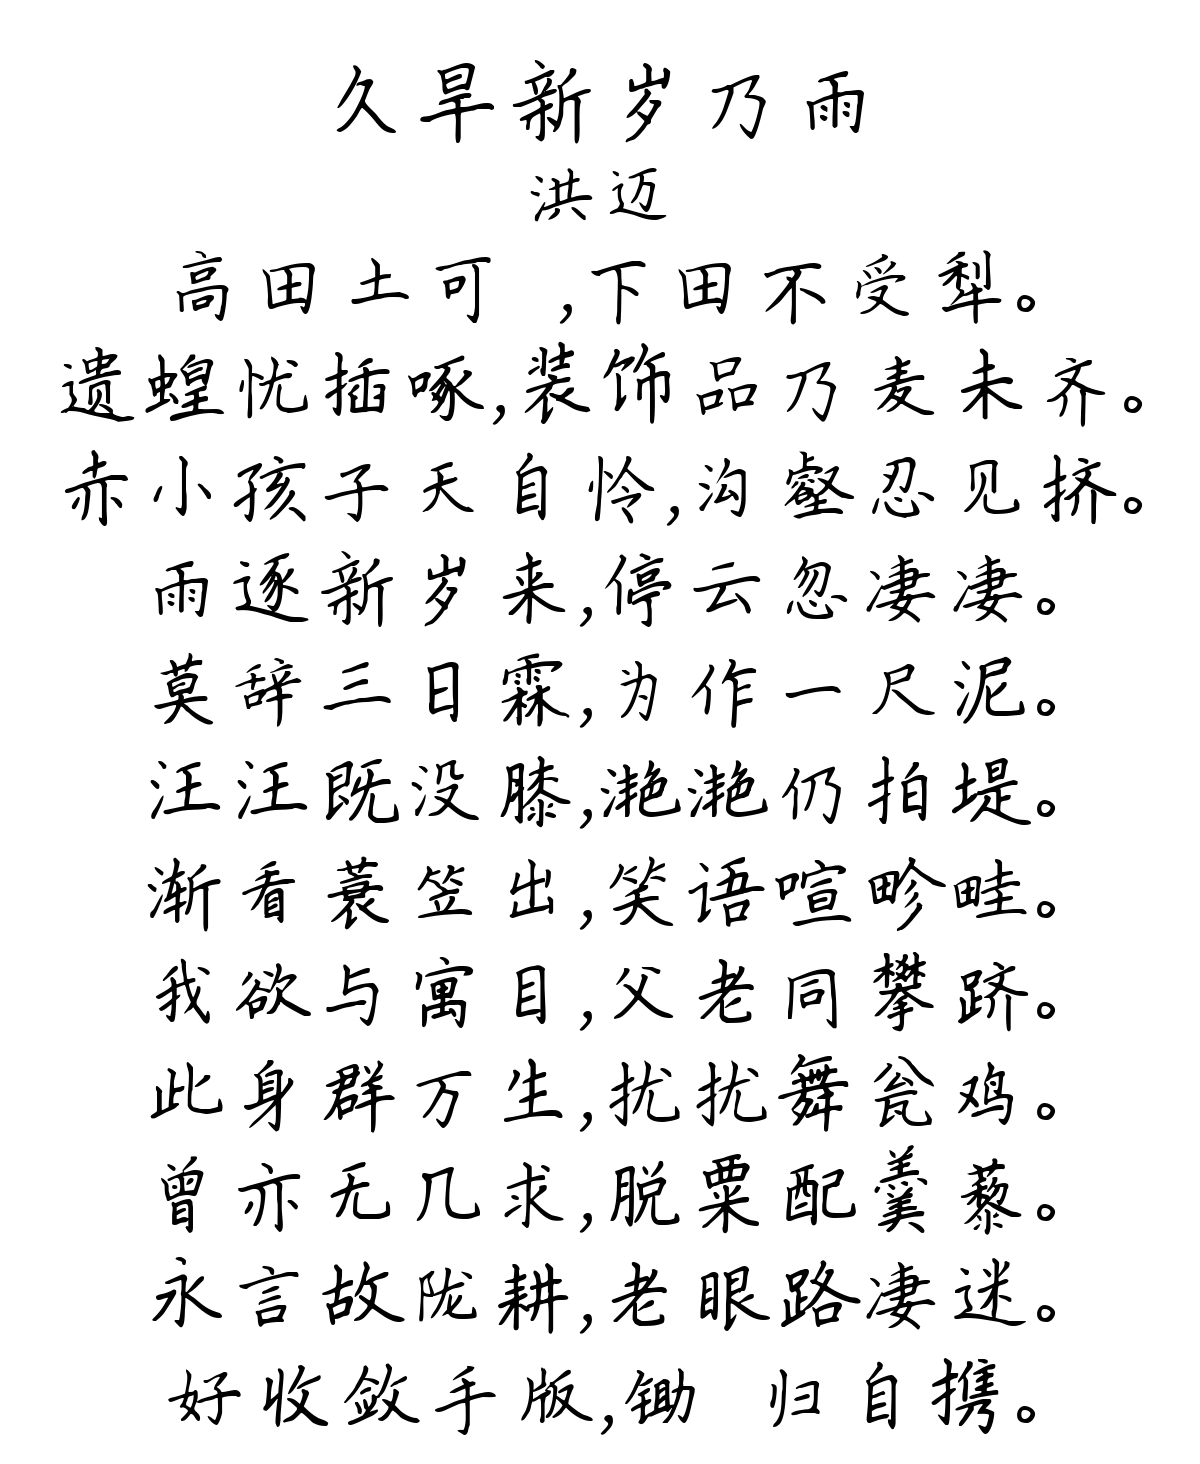 久旱新岁乃雨
洪迈
高田土可 ,下田不受犁。
遗蝗忧插啄,装饰品乃麦未齐。
赤小孩子天自怜,沟壑忍见挤。
雨逐新岁来,停云忽凄凄。
莫辞三日霖,为作一尺泥。
汪汪既没膝,滟滟仍拍堤。
渐看蓑笠出,笑语喧畛畦。
我欲与寓目,父老同攀跻。
此身群万生,扰扰舞瓮鸡。
曾亦无几求,脱粟配羹藜。
永言故陇耕,老眼路凄迷。
好收敛手版,锄 归自携。